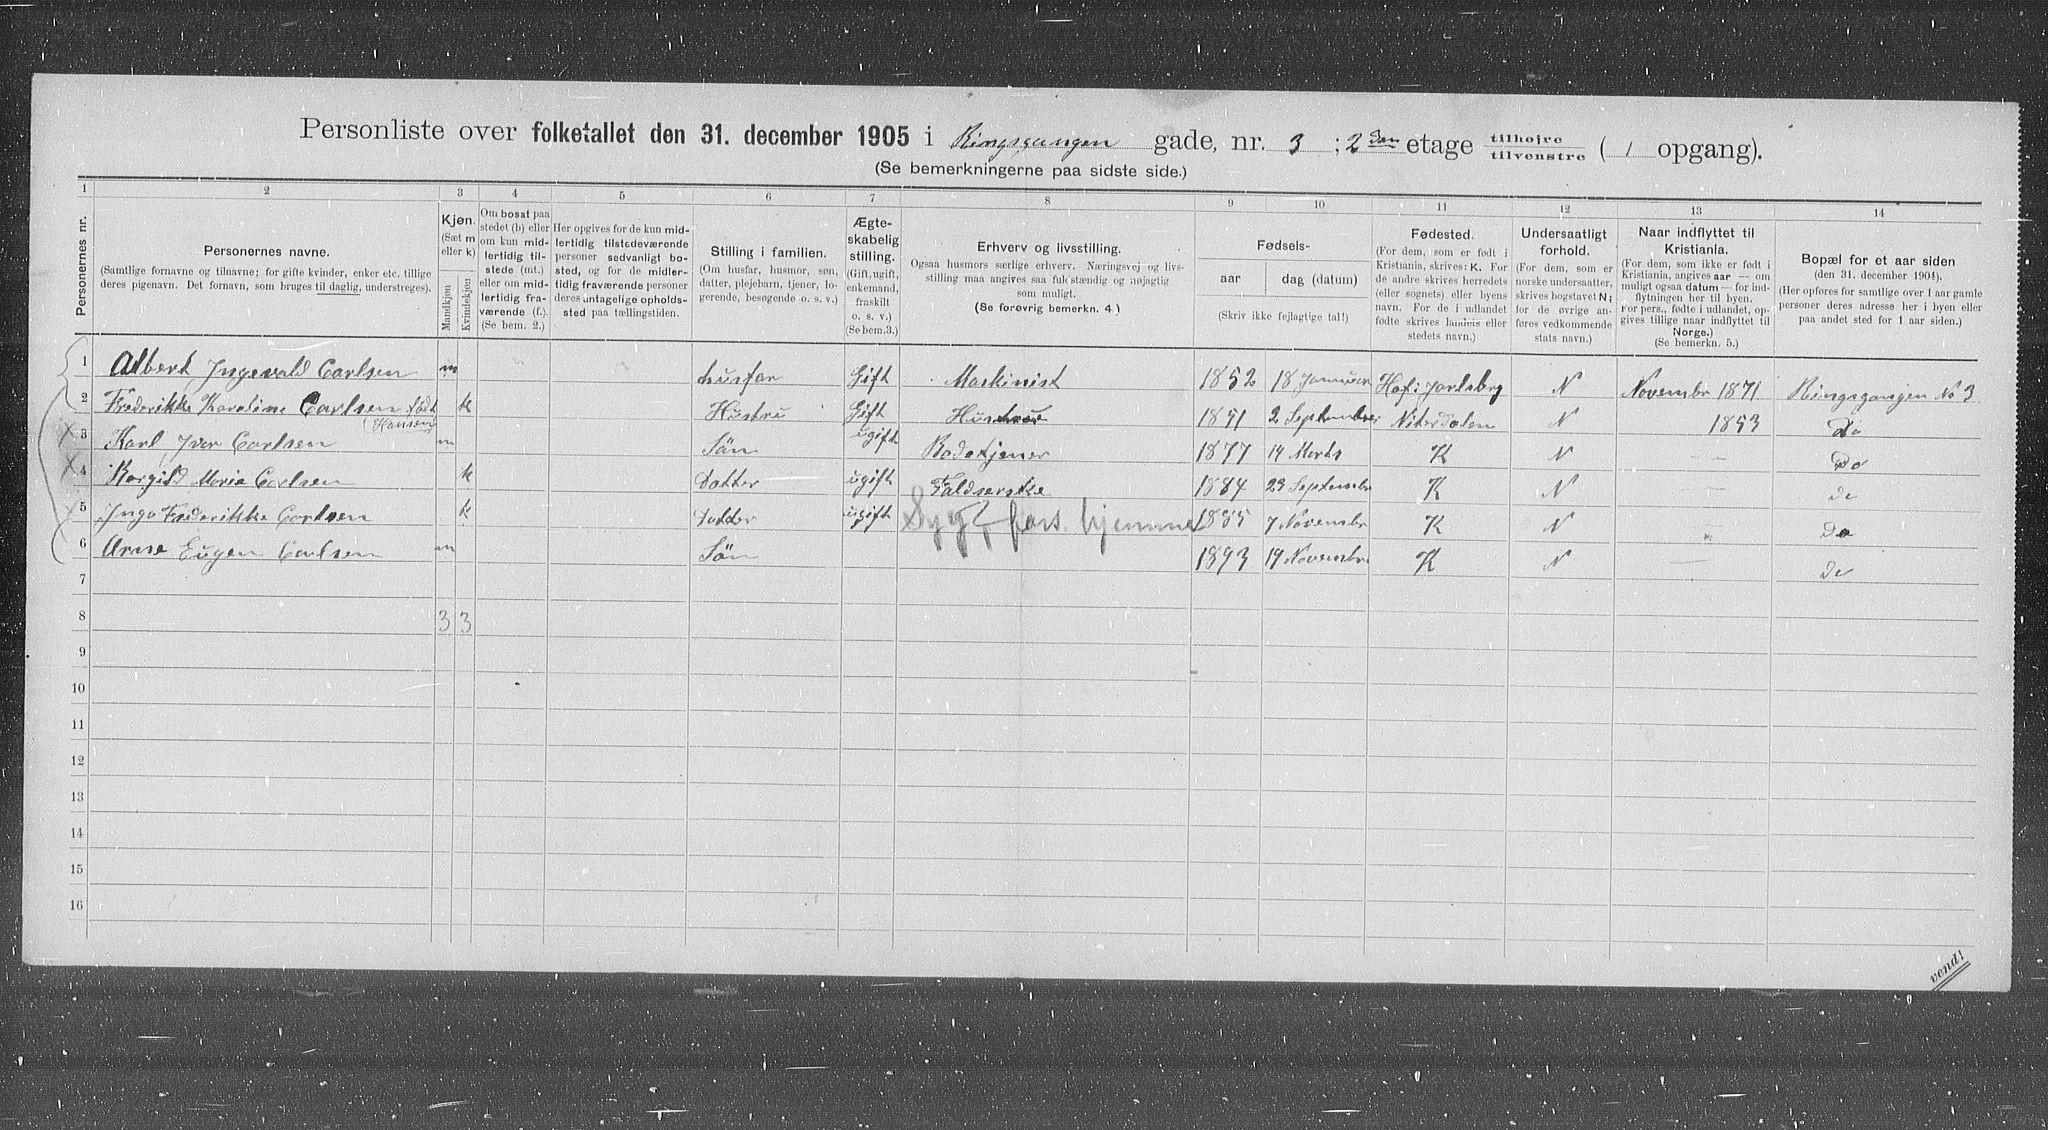 Personliste over folketallet den 31. december 1905 i Ringsgangen gade, nr. 3 ; 2den etage tilhøjre tilvenstre ( 1 opgang).
(Se bemerkningerne paa sidste side.)
1 2 3 4 5 6 7 8 9 10 11 12 13 14
Personernes nr.
Personernes navne.
(Samtlige fornavne og tilnavne; for gifte kvinder, enker etc. tillige
deres pigenavn. Det fornavn, som bruges til daglig, understreges).
Kjøn.
(Sæt m
eller k)
Mandkjøn
Kvindekjøn
Om bosat paa
stedet (b) eller
om kun mid-
lertidig til-
stede (mt.)
eller om mid-
lertidig fra-
værende (f.).
(Se bem. 2.)
Her opgives for de kun mid-
lertidig tilstedeværende
personer sedvanlig bo-
sted, og for de midler-
tidig fraværende personer
deres antagelige opholds-
sted paa tællingstiden.
Stilling i familien.
(Om husfar, husmor, søn,
datter, plejebarn, tjener, lo-
gerende, besøgende o. s. v.)
Ægte-
skabelig
stilling.
(Gift, ugift,
enkemand,
fraskilt
o. s. v.)
(Se bem.3.)
Erhverv og livsstilling.
Ogsaa husmors særlige erhverv. Næringsvej og livs-
stilling maa angives saa fuldstændig og nøjagtig
som muligt.
(Se forøvrig bemerkn. 4.)
Fødsels-
aar
dag (datum)
(Skriv ikke fejlagtige tal!)
Fødested.
(For dem, som er født i
Kristiania, skrives: K. For
de andre skrives herredets
(eller sognets) eller byens
navn. For de i udlandet
fødte skrives landets eller
stedets navn.)
Undersaatligt
forhold.
(For dem, som er
norske undersaatter,
skrives bogstavet N;
for de øvrige an-
føres vedkommende
stats navn.)
Naar indflyttet til
Kristiania.
(For dem, som ikke er født i
Kristiania, angives aar — om
muligt ogsaa datum — for ind-
flytningen her til byen.
For pers., fødte i udlandet, op-
gives tillige naar indflyttet til
Norge.)
(Se bemerkn. 5.)
Bopæl for et aar siden
(den 31. december 1904).
(Her opføres for samtlige over 1 aar gamle
personer deres adresse her i byen eller
paa andet sted for 1 aar siden.)
1 Albert Ingevald Carlsen m husfar Gift Maskinist 1852 18 Januar Hof i Jarlsberg N Novembr 1871 Ringsgangen No 3
2 Frederikke Karoline Carlsen født Hansen k Hustru Gift Hustrue 1851 2 September Niterdalen N 1853 Do
3 Karl Iver Carlsen m Sön ugift 1877 14 Marts K N — Do
4 Borgild Marie Carlsen k Datter ugift Faldserske 1884 23 Septembr K N — Do
5 Inga Frederikke Carlsen k Datter ugift Sygl, fors. hjemme 1885 7 Novembr K N — Do
6 Arne Eugen Carlsen m Sön 1893 19 Novembr K N — Do
7
8 3 3
9
10
11
12
13
14
15
16
vend!